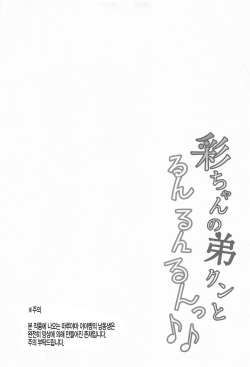 彩ちゃんの弟クンと
るんるんるんっ♪♪
※주의
본 작품에 나오는 마루야마 아야짱의 남동생은
완전히 망상에 의해 만들어진 존재입니다.
주의 부탁드립니다.